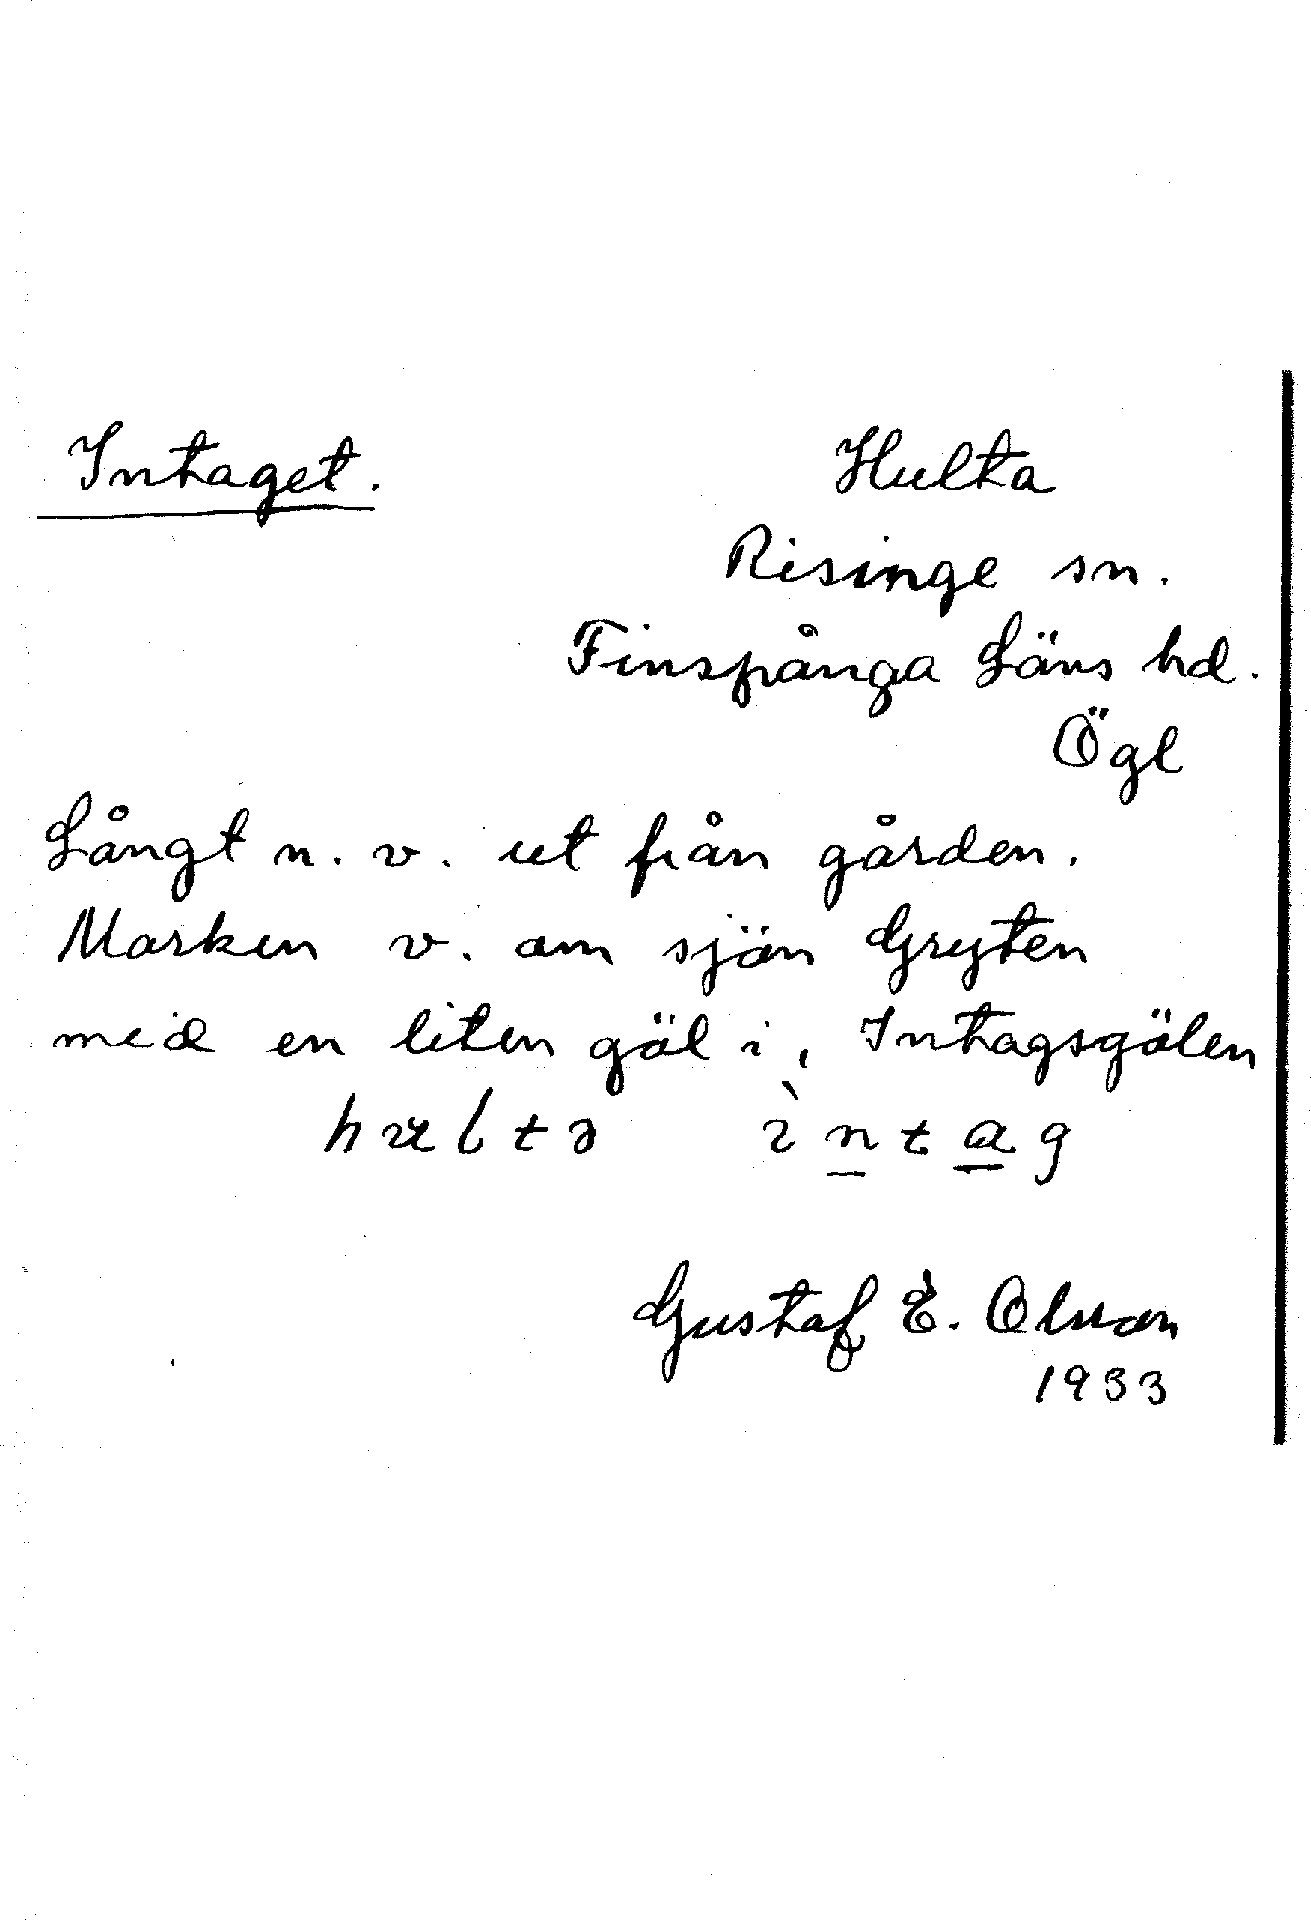 Intaget. Hulta
Risinge sn.
Finspånga Läns hd.
Ögl
Långt n. v. ut från gården.
Marken v. om sjön Gryten
med en liten göl i, Intagsgölen
hultə ìntag
Gustaf E. Olsson
1933